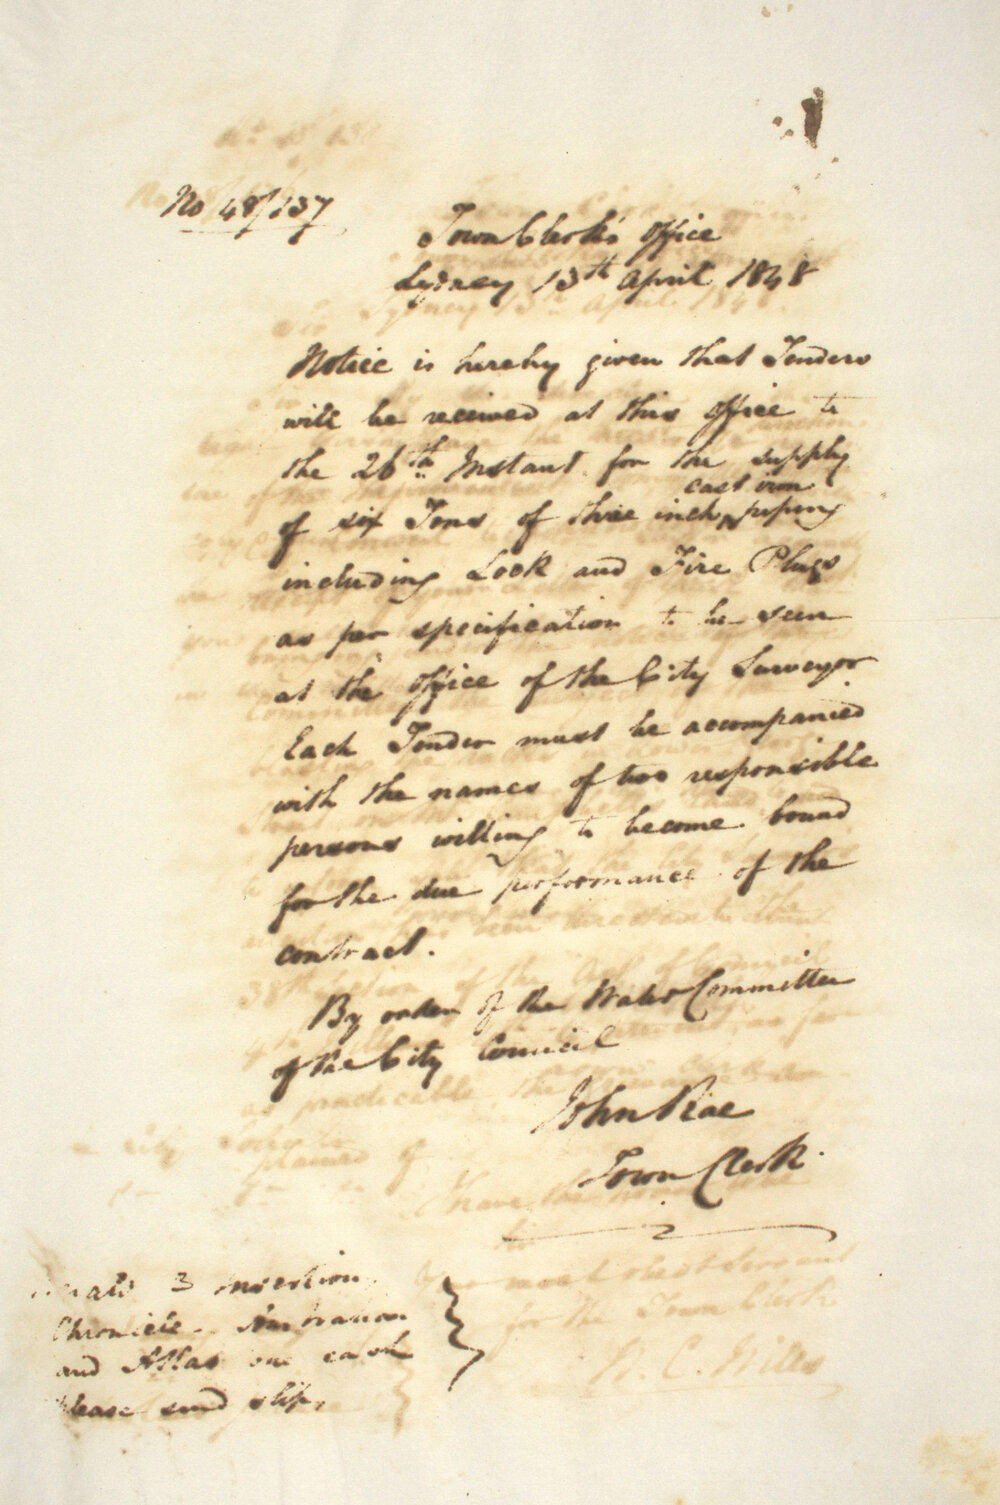 No 48/137
Town Clerk's Office
Sydney 13th April 1848
Notice is hereby given that Tenders
will be received at this Office to
the 26th Instant for the supply
of six Tons of three inch cast iron piping
including Cock and Fire Plugs
as per specification to be seen
at the Office of the City Surveyor
Each Tender must be accompanied
with the names of two responsible
persons willing to become bound
for the due performance of the
contract.
By order of the Water Committee
of the City Council
John Rae
Town Clerk.
Herald 3 insertion
Chronicle.
and Atlas one each
Please send slip.